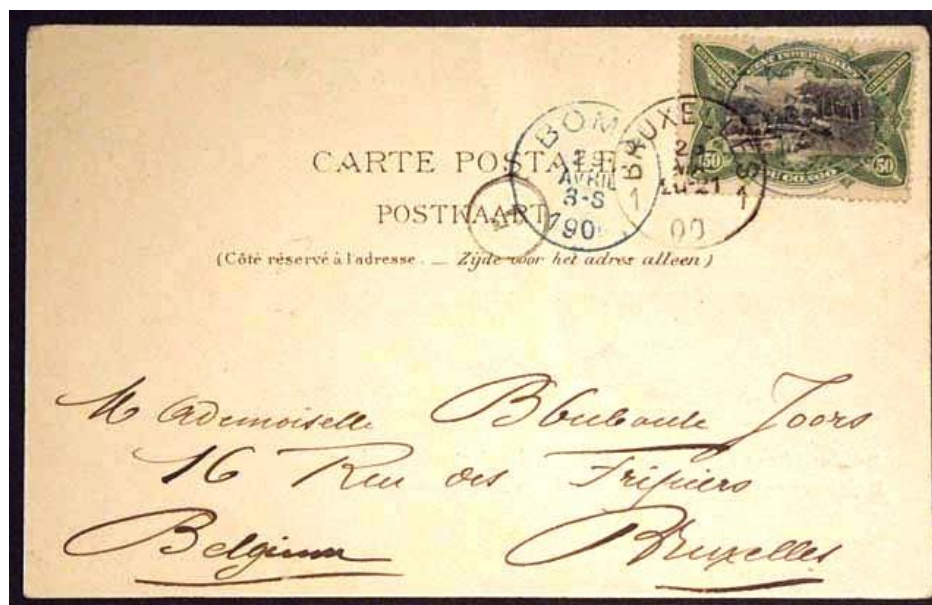 CARTE POSTALE
POSTKAART
(Côté réservé à l'adresse. — Zijde voor het adres alleen)
BOM
AVRIL
8-S
190
BRUXELLES
1 1
20-21
00
50 50
DU CONGO
Mademoiselle Joors
16 Rue des Fripiers
Belgium Bruxelles